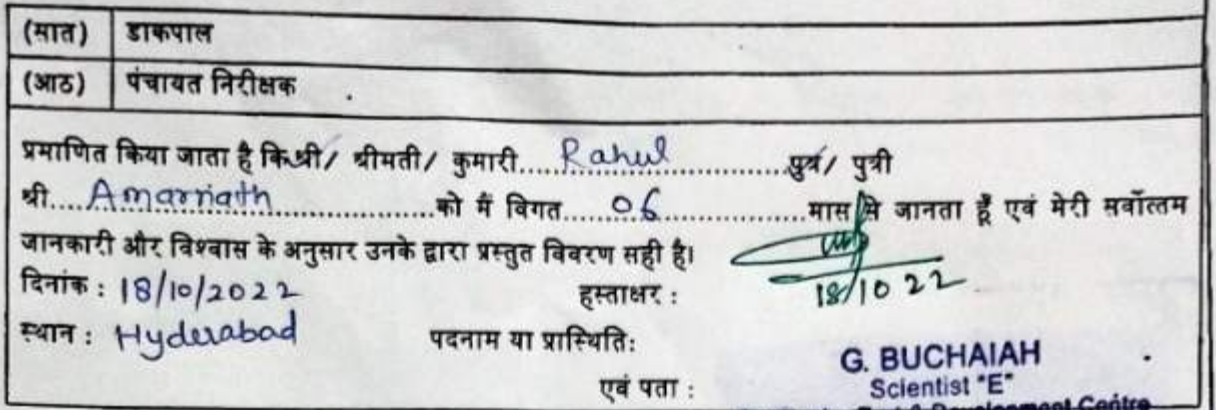 (सात) डाकपाल
(आठ) पंचायत निरीक्षक
प्रमाणित किया जाता है कि श्री/ श्रीमती/ कुमारी.....Rahul...............पुत्र/ पुत्री
श्री....Amarnath...............को मैं विगत......06...............मास से जानता हूँ एवं मेरी सर्वोत्तम
जानकारी और विश्वास के अनुसार उनके द्वारा प्रस्तुत विवरण सही है।
दिनांक : 18/10/2022 हस्ताक्षर : 18/10 22
स्थान : Hyderabad पदनाम या प्रास्थिति:
G. BUCHAIAH
एवं पता : Scientist "E"
Development Centre